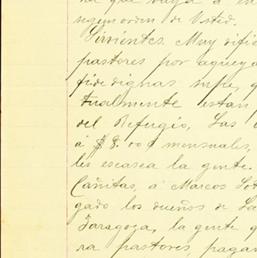 na que vaya a en
seguir orden de Usted.
Sirvientes. Muy difi
pastores por aquí ya
fidedignas supe, q
tualmente están
del Refugio, Las
á $8.00 mensuales,
les escasea la gente.
Cañitas, a Marcos Sot
gado los dueños de La
Zaragoza, la gente q
ra pastores, pagan